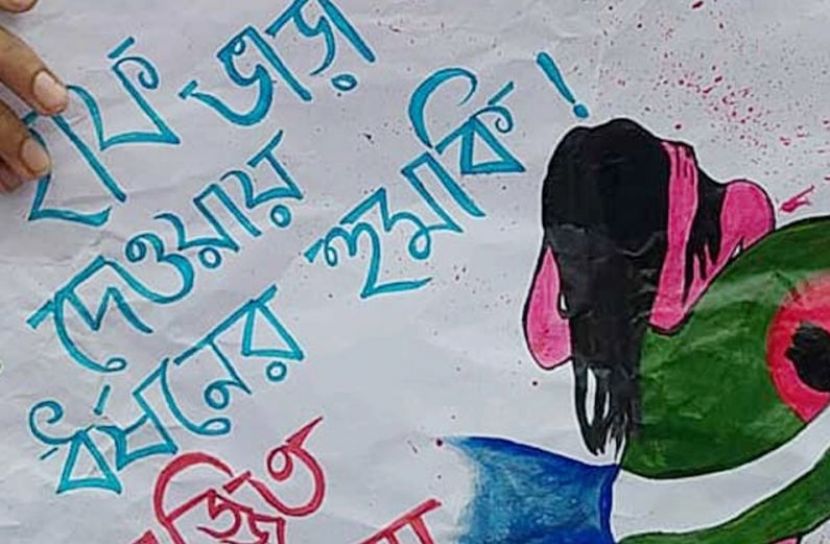 হাফ ভাড়া
দেওয়ায়
ধর্ষনের হুমকি !
লজ্জিত